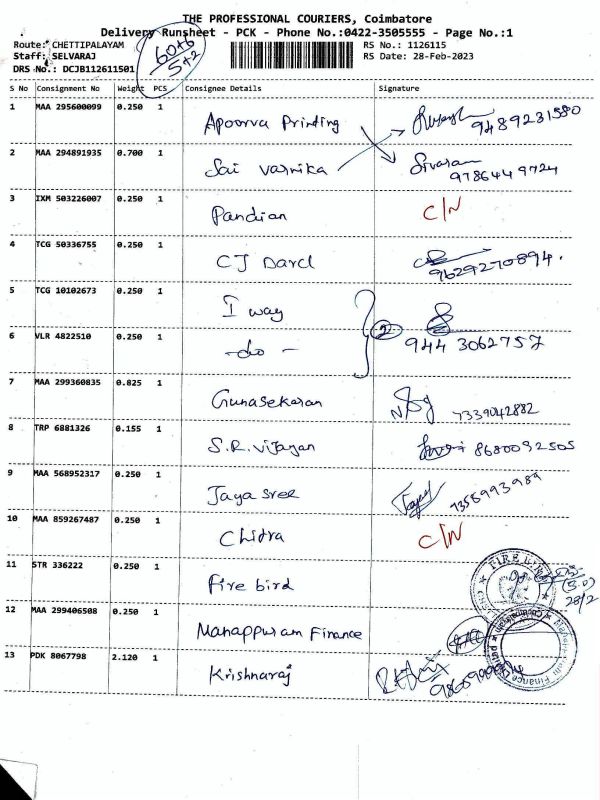 THE PROFESSIONAL COURIERS, Coimbatore
Delivery Runsheet - PCK - Phone No.:0422-3505555 - Page No.:1
Route: CHETTIPALAYAM RS No.: 1126115
Staff: SELVARAJ RS Date: 28-Feb-2023
DRS No.: DCJB112611501
60+6
5+2
S No Consignment No Weight PCS Consignee Details Signature
1 MAA 295600099 0.250 1 Apoorva Printing 9489231580
2 MAA 294891935 0.700 1 Sai Varnika Sivaram 9786449724
3 IXM 503226007 0.250 1 Pandian C/N
4 TCG 50336755 0.250 1 CJ Darcl 9629270894.
5 TCG 10102673 0.250 1 I way
6 VLR 4822510 0.250 1 -do- 2 944 3062757
7 MAA 299360835 0.825 1 Gunasekaran 7339042882
8 TRP 6881326 0.155 1 S.R. Vijayan 8680092505
9 MAA 568952317 0.250 1 Jayasree 7358993989
10 MAA 859267487 0.250 1 Chitra C/N
11 STR 336222 0.250 1 Fire bird 28/2
12 MAA 299406508 0.250 1 Manappuram Finance
13 PDK 8067798 2.120 1 Krishnaraj